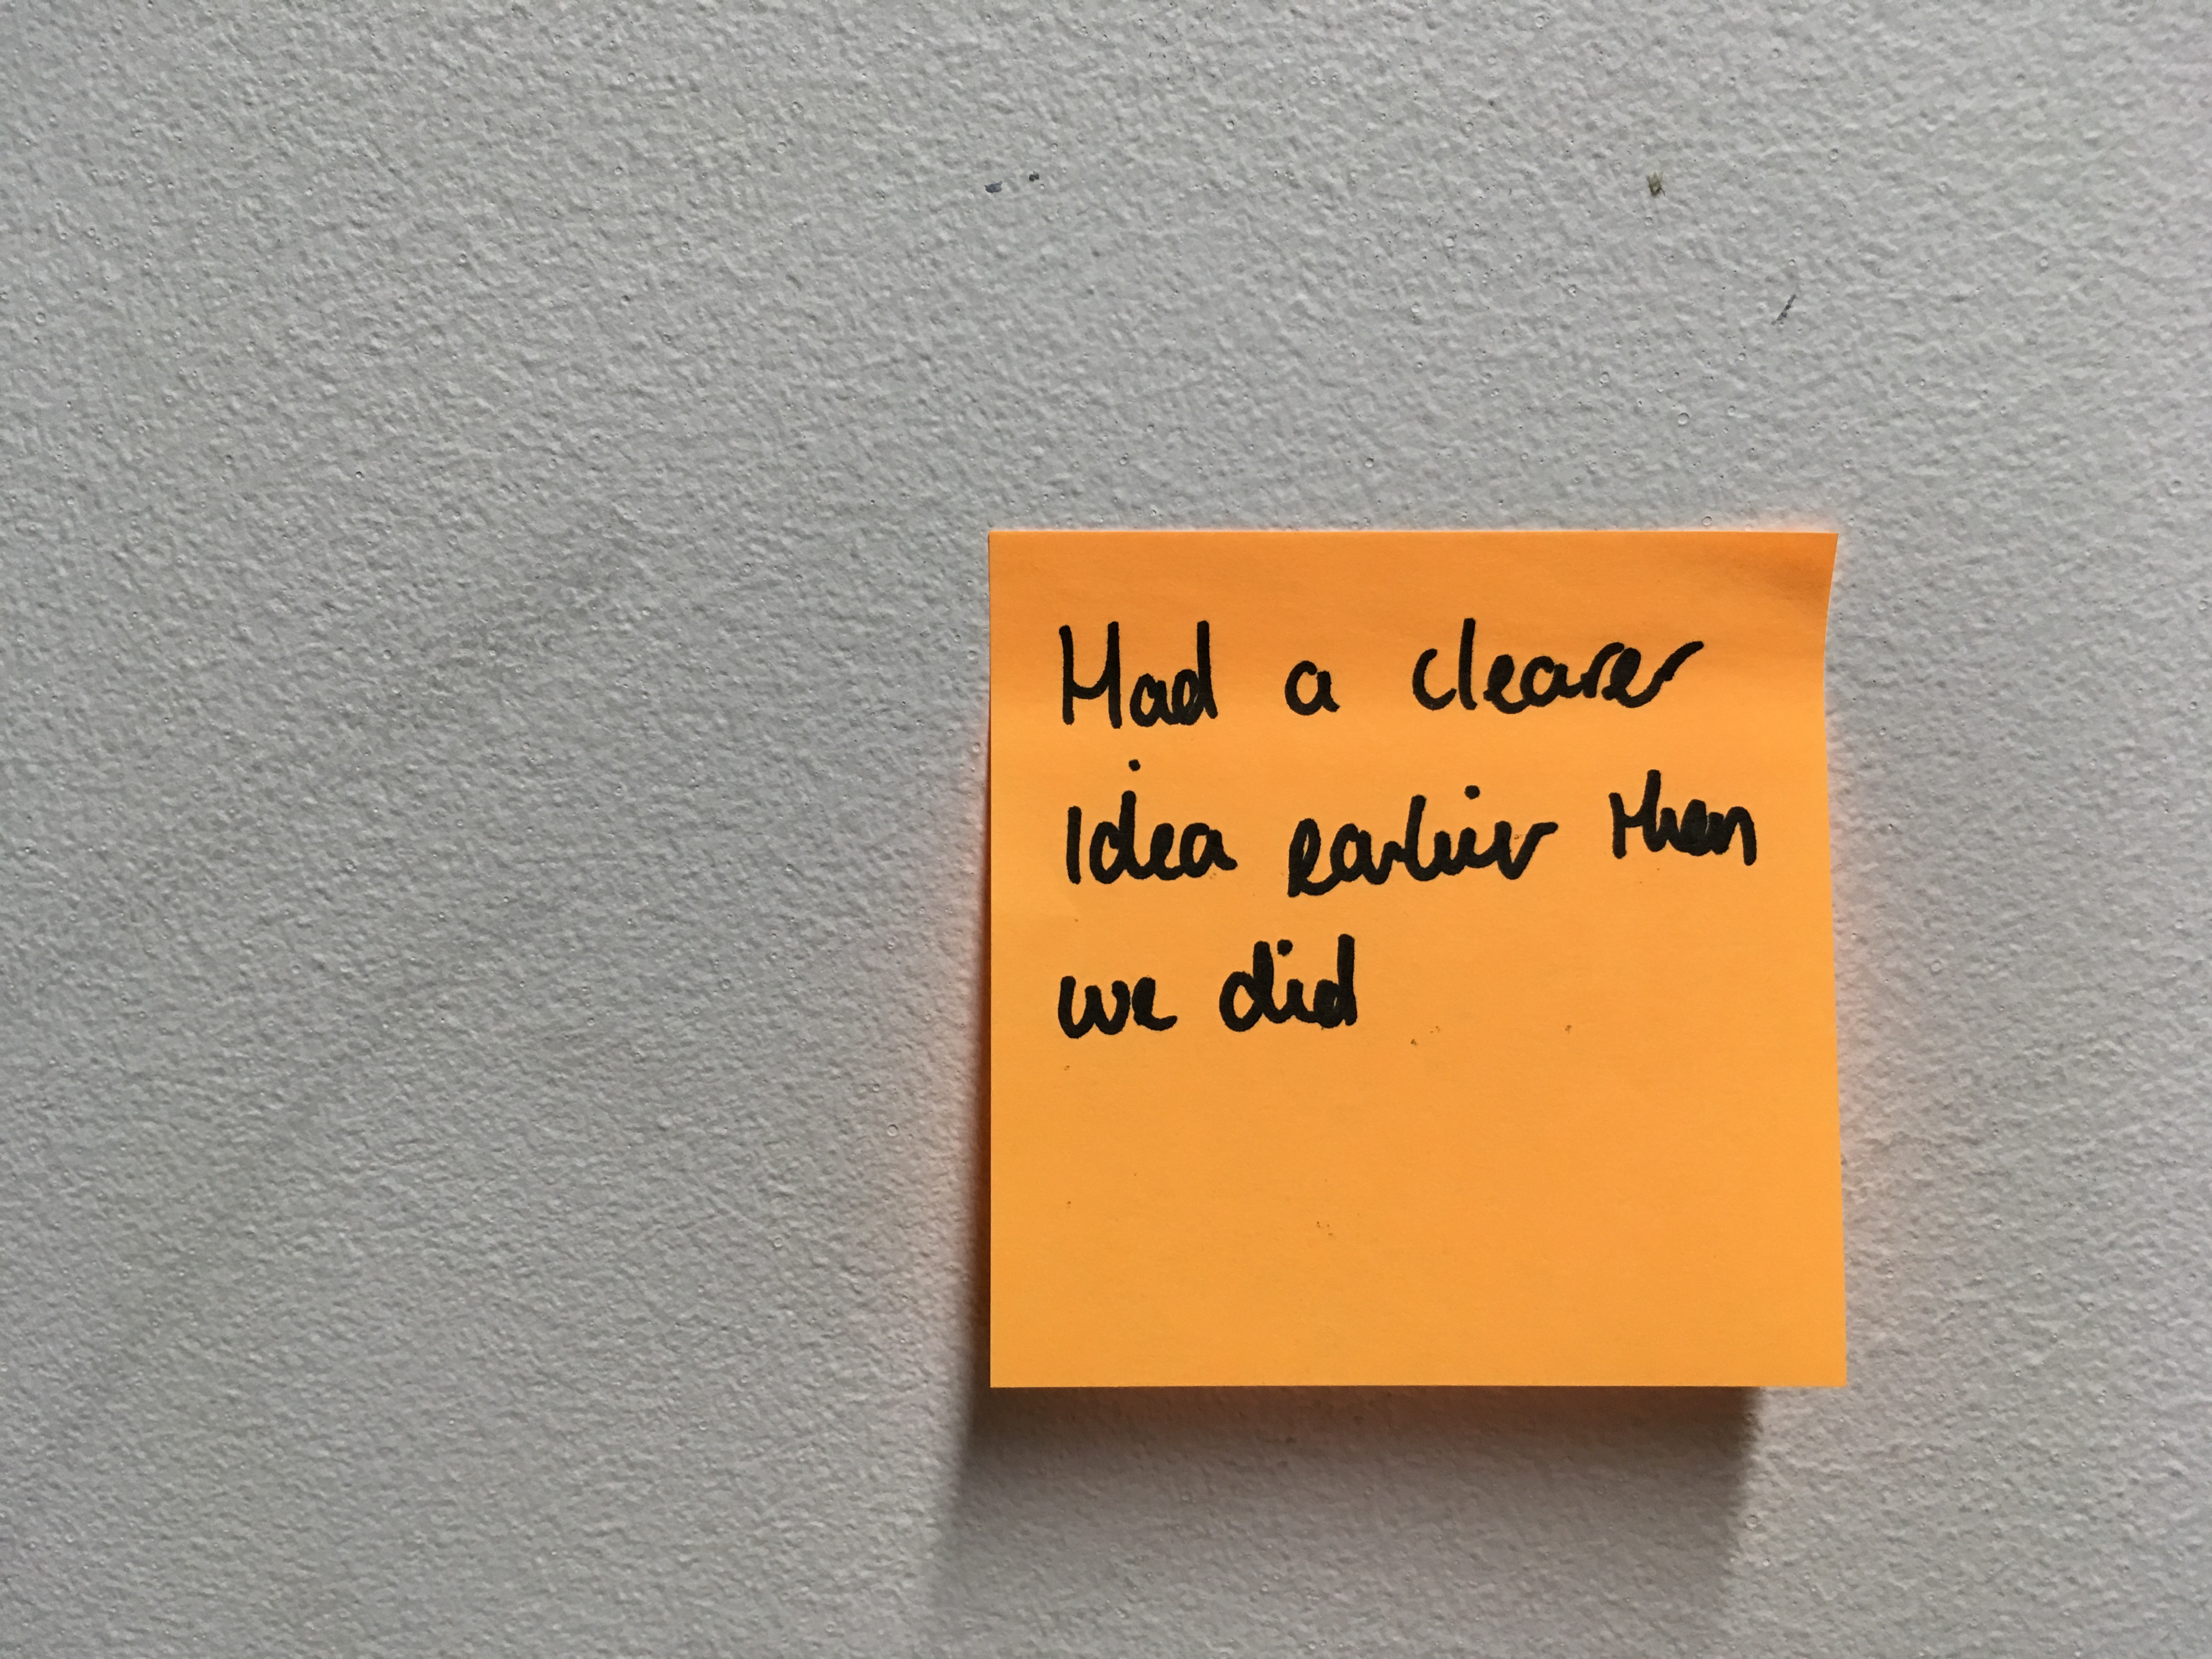 Had a clearer
idea earlier then
we did